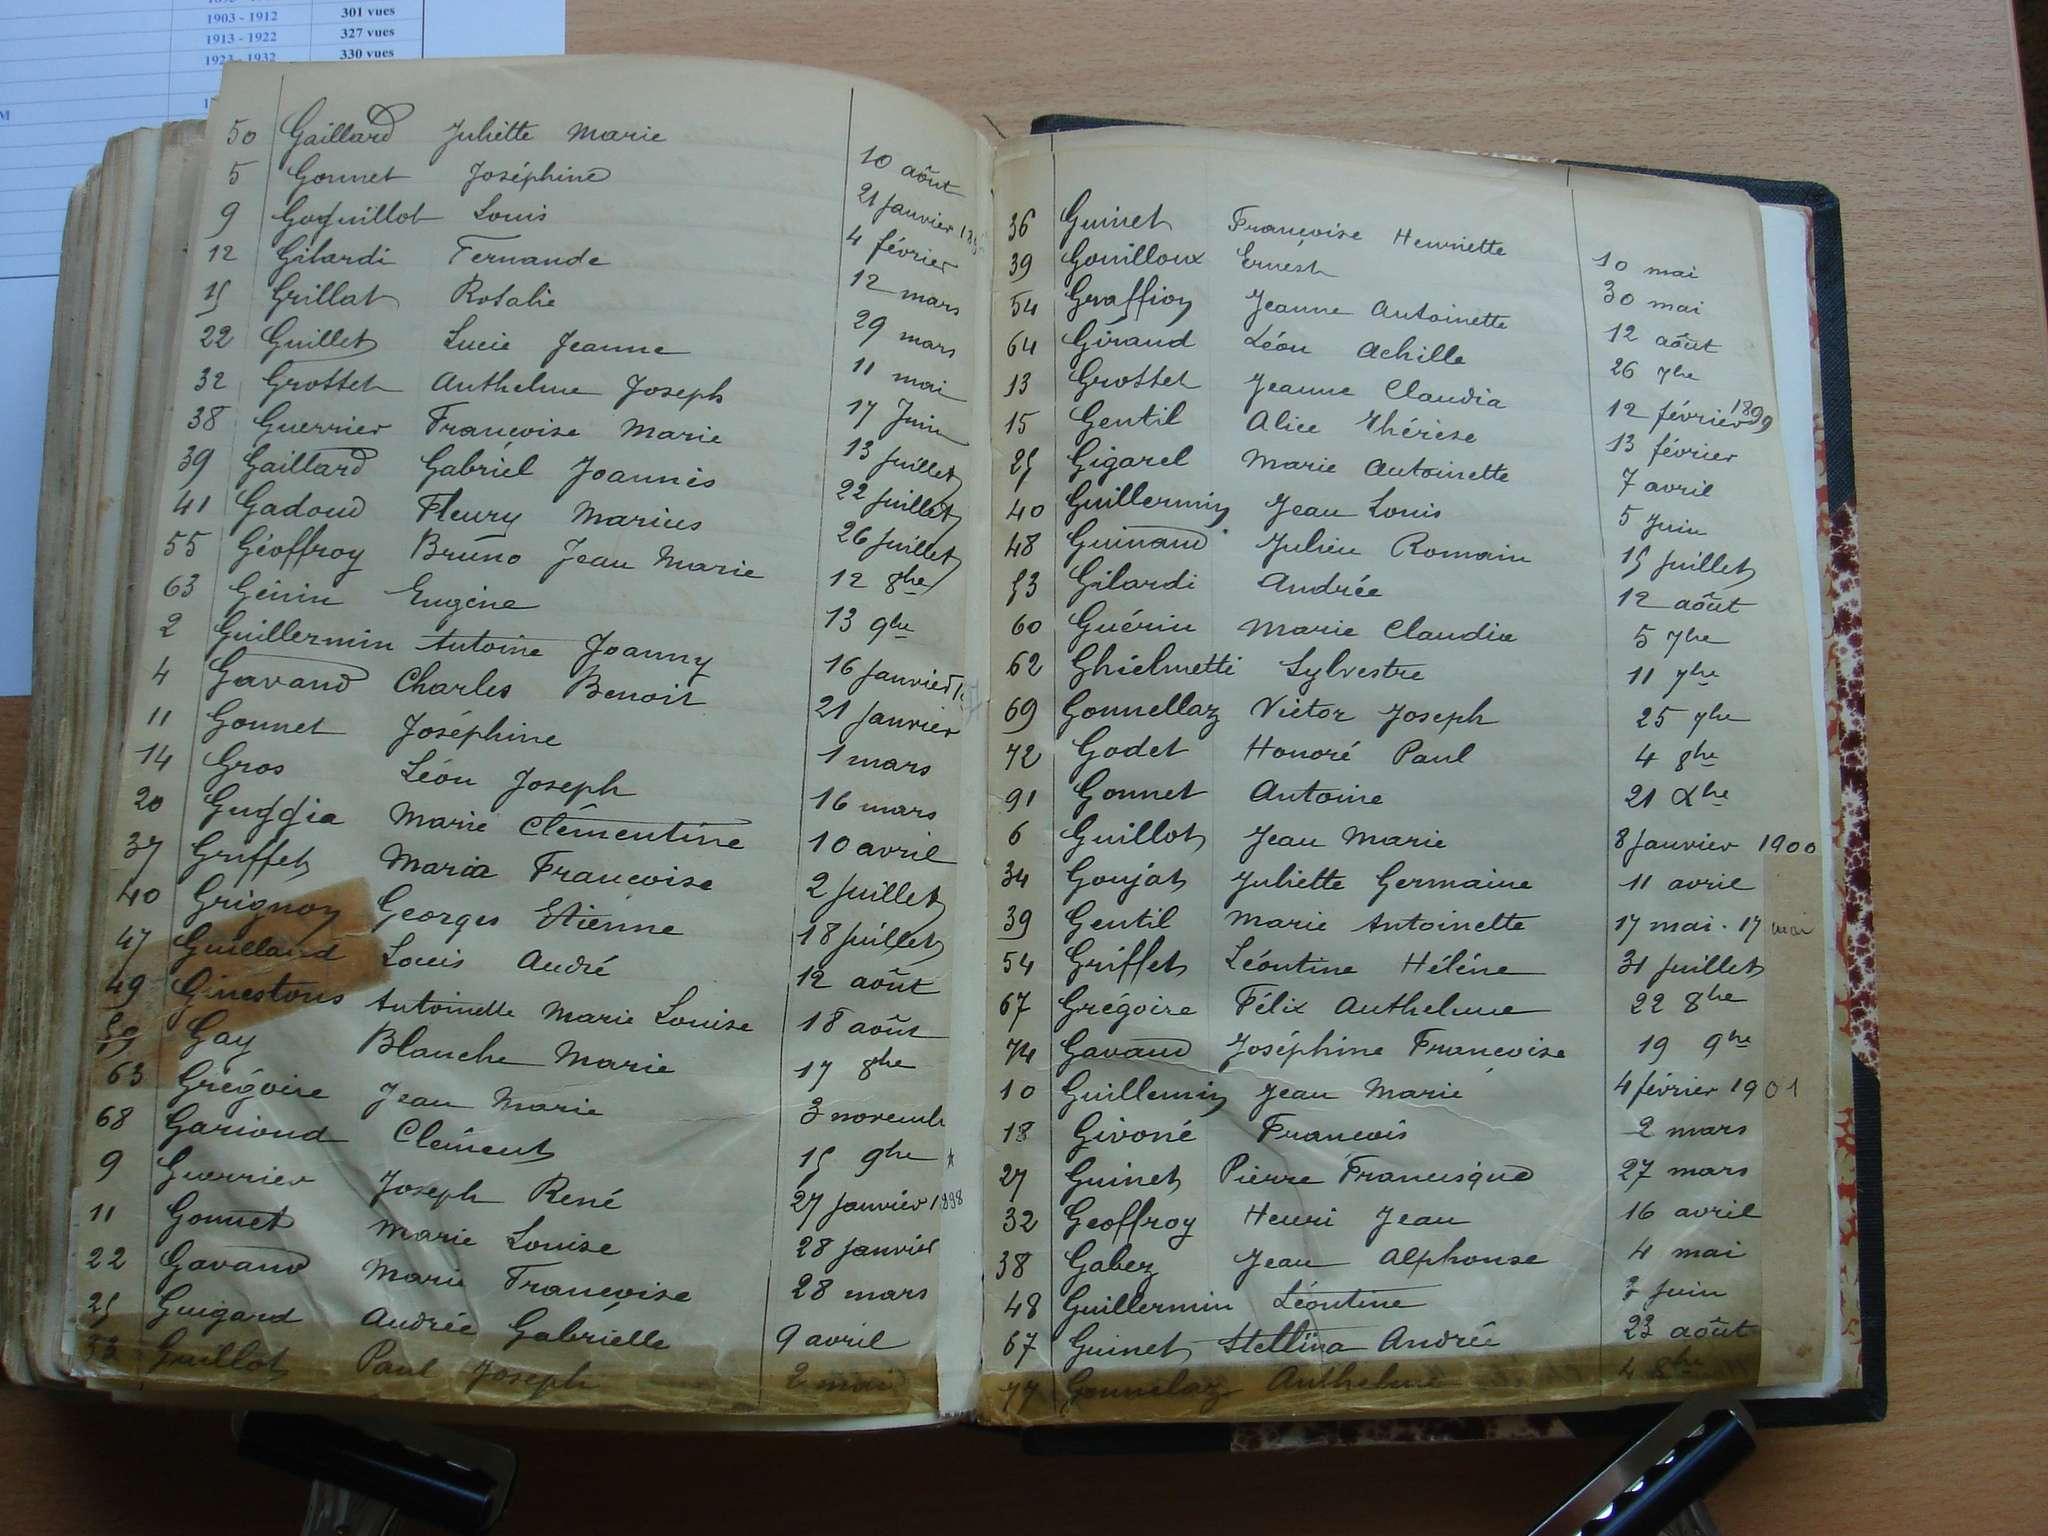 1903 - 1912 301 vues
1913 - 1922 327 vues
1923 - 1932 330 vues
M
50 Gaillard Juliette Marie 10 août
5 Gonnet Joséphine 21 Janvier
9 Goguillot Louis 4 février
12 Gilardi Fernande 12 mars
15 Grillat Rosalie 29 mars
22 Guillet Lucie Jeanne 11 mai
32 Grottet Anthelme Joseph 17 Juin
38 Guerrier Françoise Marie 13 Juillet
39 Gaillard Gabriel Joannès 22 Juillet
41 Gadoud Fleury Marius 26 Juillet
55 Géoffroy Bruno Jean Marie 12 8bre
63 Génin Eugène 13 9bre
2 Guillermin Antoine Joanny 16 Janvier
4 Gavand Charles Benoit 21 Janvier
11 Gonnet Joséphine 1 mars
14 Gros Léon Joseph 16 mars
20 Guggia Marie Clémentine 10 avril
37 Griffet Maria Françoise 2 Juillet
40 Grignon Georges Etienne 18 Juillet
47 Guilland Louis André 12 août
49 Ginestous Antoinette Marie Louise 18 août
59 Gay Blanche Marie 17 8bre
63 Grégoire Jean Marie 3 novemb
68 Garioud Clément 15 9bre
9 Guerrier Joseph René 27 Janvier 1898
11 Gonnet Marie Louise 28 Janvier
22 Gavand Marie Françoise 28 mars
25 Guigard Andrée Gabrielle 9 avril
33 Guillot Paul Joseph 2 mai
36 Guinet Françoise Henriette 10 mai
39 Gouilloux Ernest 30 mai
54 Graffion Jeanne Antoinette 12 août
64 Giraud Léon Achille 26 7bre
13 Grottet Jeanne Claudia 12 février 1899
15 Gentil Alice Thérèse 13 février
25 Gigarel Marie Antoinette 7 avril
40 Guillermin Jean Louis 5 Juin
48 Guinand Julien Romain 15 Juillet
53 Gilardi Andrée 12 août
60 Guérin Marie Claudia 5 7bre
62 Ghielmetti Sylvestre 11 7bre
69 Gonnellaz Victor Joseph 25 7bre
72 Godet Honoré Paul 4 8bre
91 Gonnet Antoine 21 Xbre
6 Guillot Jean Marie 8 Janvier 1900
34 Goujat Juliette Germaine 11 avril
39 Gentil Marie Antoinette 17 mai. 17 mai
54 Griffet Léontine Hélène 31 Juillet
67 Grégoire Félix Anthelme 22 8bre
74 Gavand Joséphine Françoise 19 9bre
10 Guillemin Jean Marie 4 février 1901
18 Givoné François 2 mars
27 Guinet Pierre Francisque 27 mars
32 Geoffroy Henri Jean 16 avril
38 Gabez Jean Alphonse 4 mai
48 Guillermin Léontine 3 Juin
67 Guinet Stellina André 23 août
77 Gonnelaz Anthelme 4 8bre